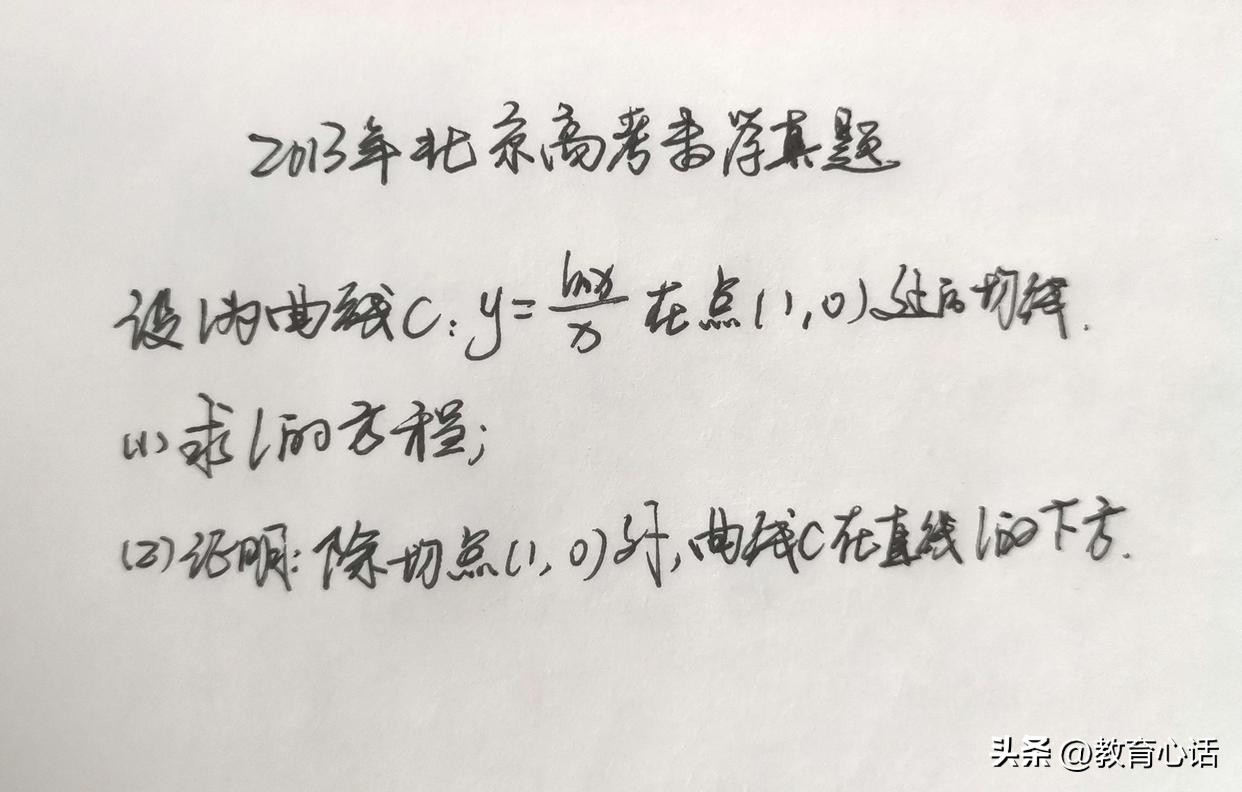 2013年北京高考数学真题
设l为曲线C:y=lnx/x在点(1,0)处的切线.
(1)求l的方程;
(2)证明:除切点(1,0)外,曲线C在直线l的下方.
头条 @教育心话